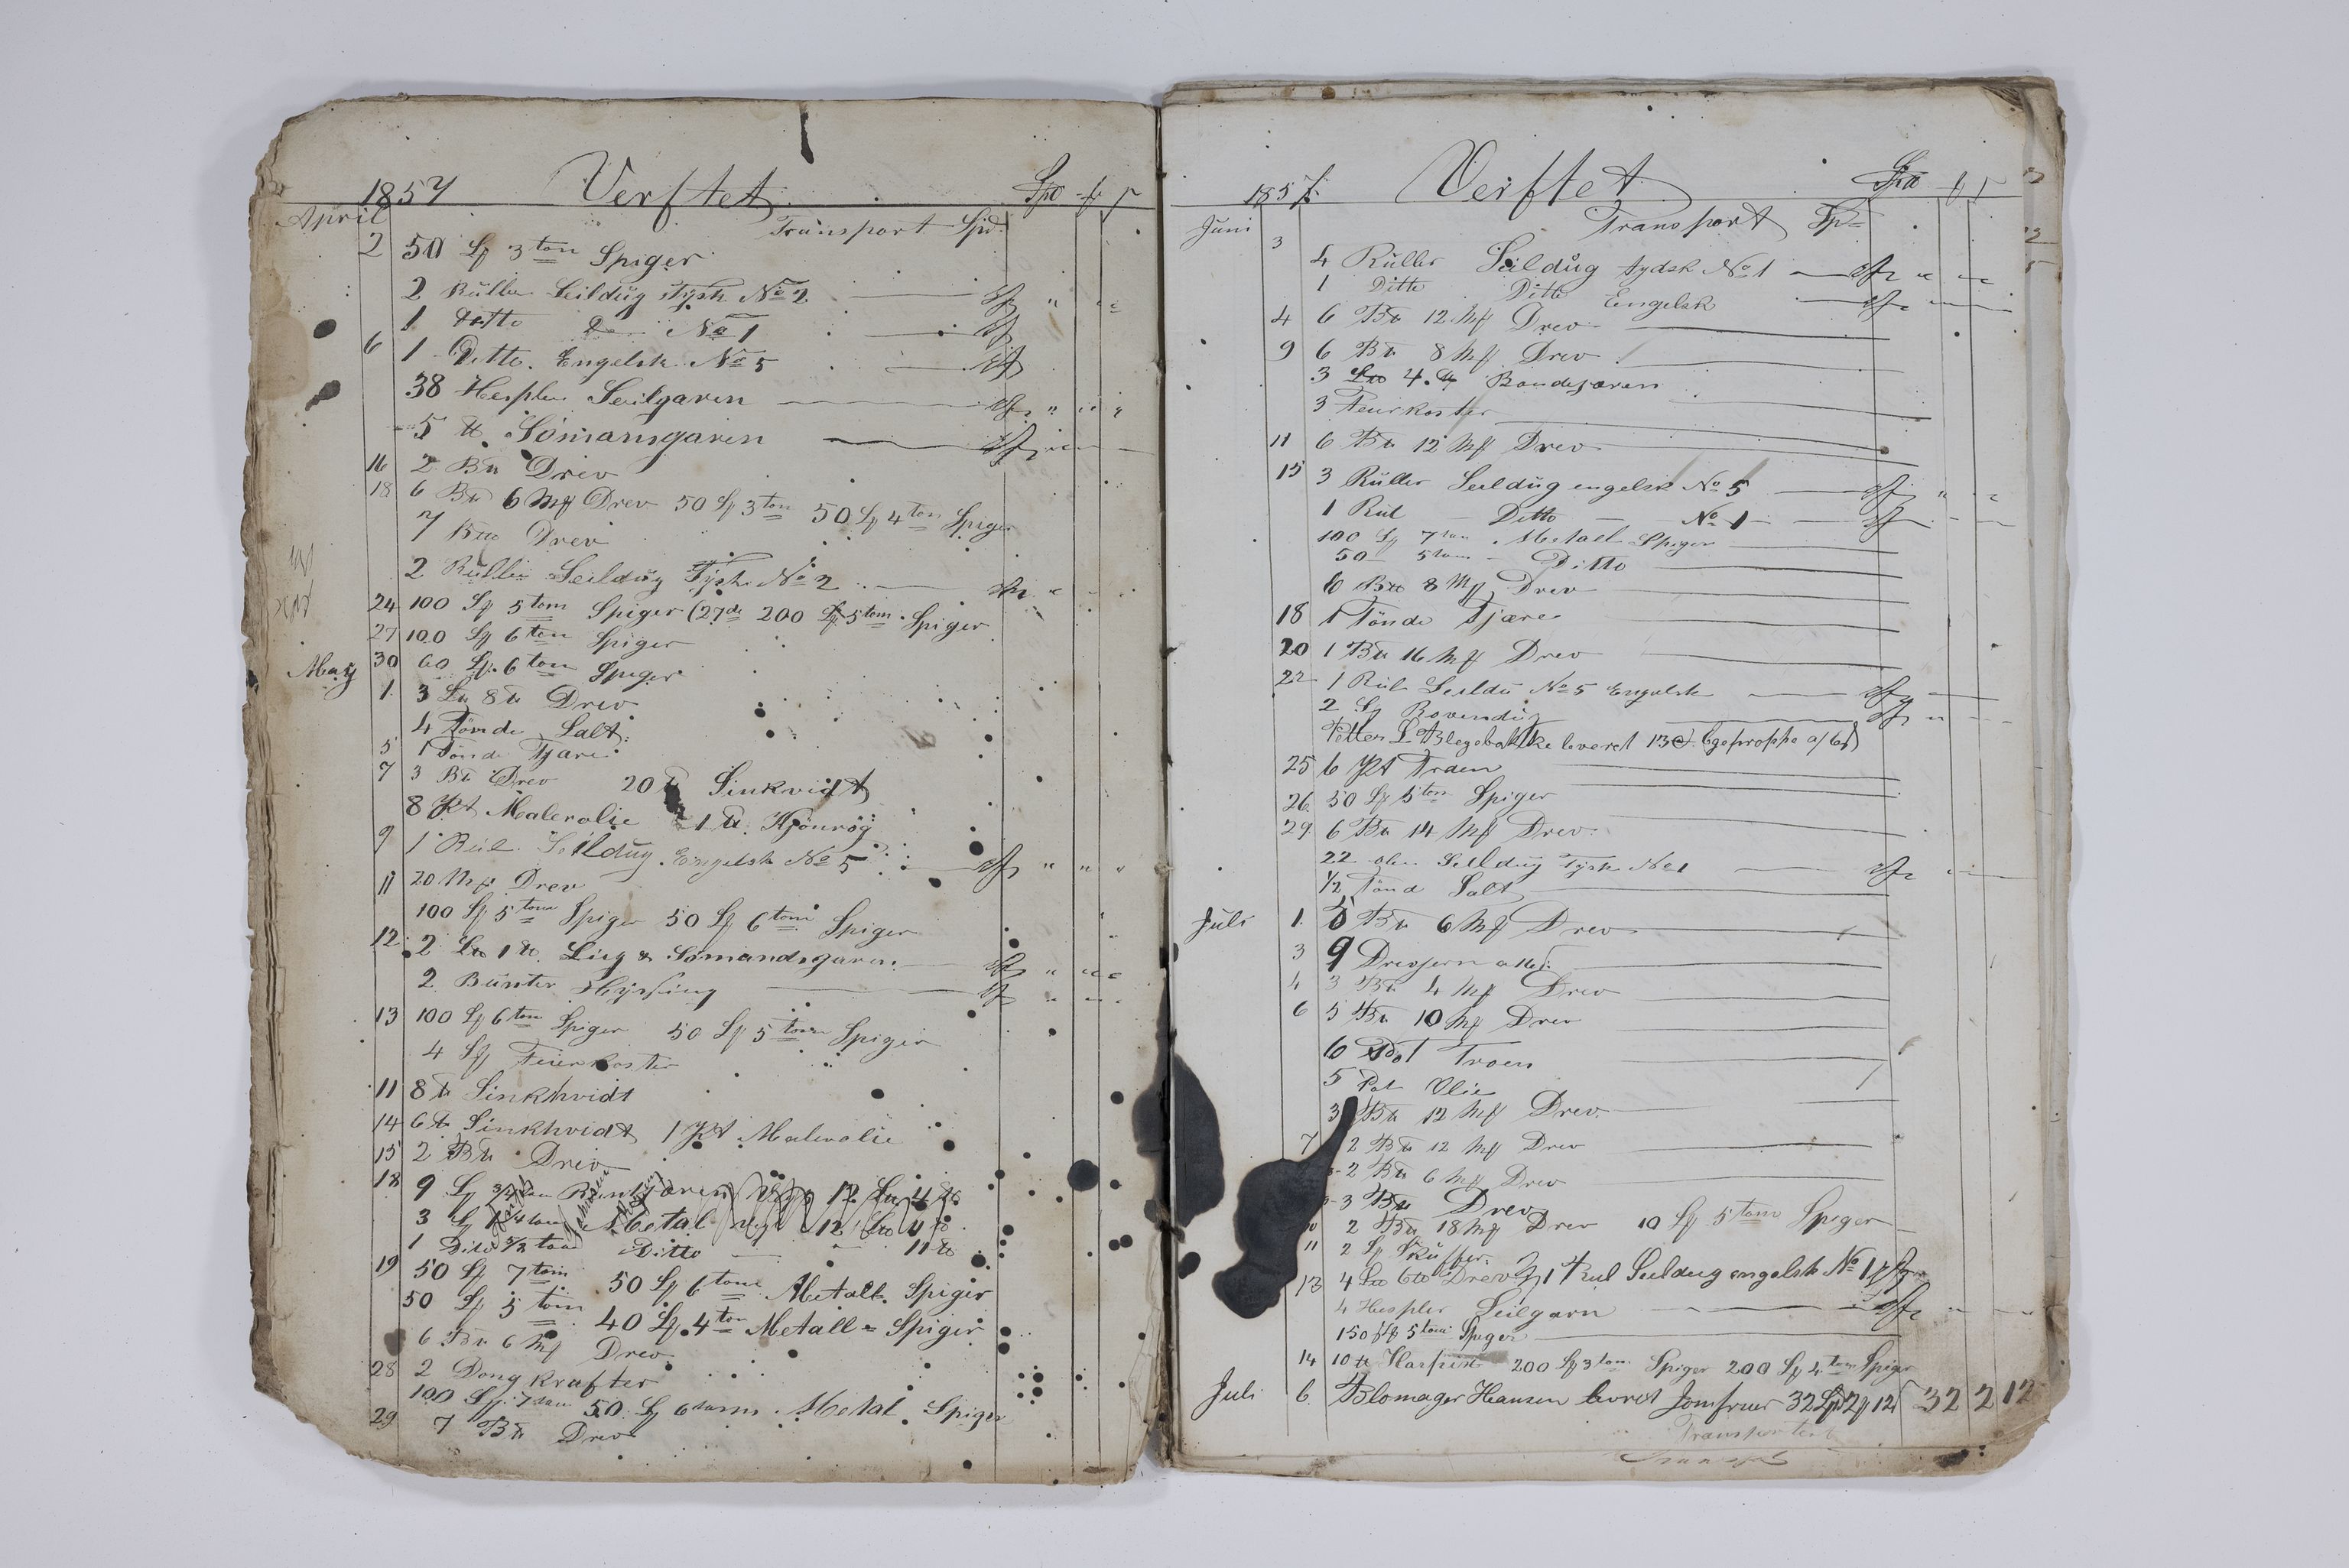 1857 Verftet Spd
April Transport Spd
2 50 St 3 tom Spiger
2 Ruller Seildug Tysk No 2
1 Ditto No 1
6 1 Ditto Engelsk No 5
38 Hespler Seilgaren
5 tt Sömansgaren
16 2 Btt Drev
18 6 Btt 6 Mk Drev 50 St 3 tom 50 St 4 tom Spiger
7 Btt Drev
2 Ruller Seildug Tysk No 2
24 100 St 5 tom Spiger (27de 200 St 5 tom Spiger
27 100 St 6 tom Spiger
30 60 St 6 tom Spiger
May 1 3 Ltt 8 tt Drev
4 Tönde Salt
5 1 Tönde Tjære
7 3 Btt Drev 20 tt Sinkvidt
8 Pt Malerolie 1 tt Kjönrög
9 1 Rul Seildug Engelsk No 5
11 20 Mk Drev
100 St 5 tom Spiger 50 St 6 tom Spiger
12 2 Ltt 1 tt Lig & Sömandsgaren
2 Bunter Hysing
13 100 St 6 tom Spiger 50 St 5 tom Spiger
4 St Feierkoster
11 8 tt Sinkhvidt
14 6 tt Sinkhvidt 1 Pt Malerolie
15 2 Btt Drev
18 9 St 3/4 tom 12 Ltt 4 tt
3 St 1/4 tom Metal 12 Ltt 4 tt
1 Dito 5/8 tom Ditto 11 tt
19 50 St 7 tom 50 St 6 tom Metall Spiger
50 St 5 tom 40 St 4 tom Metall = Spiger
6 Btt 6 Mk Drev
28 2 Dongkrafter
100 St 7 tom 50 St 6 tom Metal Spiger
29 7 Btt Drev
1857 Verftet Spd
Juni Transport Sp
3 4 Ruller Seildug tydsk No 1
1 Ditto Ditto Engelsk
4 6 Btt 12 Mk Drev
9 6 Btt 8 Mk Drev
3 Ltt 4 tt Bondejæren
3 Feierkoster
11 6 Btt 12 Mk Drev
15 3 Ruller Seildug engelsk No 5
1 Rul Ditto No 1
100 St 7 tom Metall Spiger
50 5 tom Ditto
6 Btt 8 Mk Drev
18 1 Tönde Tjære
20 1 Btt 16 Mk Drev
22 1 Rul Seildu No 5 Engelsk
2 St Rovendug
Petter L Blegebakke leveret 13
25 6 Pt Traen
26 50 St 5 tom Spiger
29 6 Btt 14 Mk Drev
22 alen Seildug Tysk No 1
1/2 Tönd Salt
Juli 1 5 Btt 6 Mk Drev
3 9 Drevjern
4 3 Btt 4 Mk Drev
6 5 Btt 10 Mk Drev
6 Pot Troen
5 Pot Olie
3 Btt 12 Mk Drev
7 2 Btt 12 Mk Drev
2 Btt 6 Mk Drev
3 Btt Drev
2 Btt 18 Mk Drev 10 St 5 tom Spiger
11 2 St Skuffer
13 4 Ltt 6 tt Drev 1 Rul Seildug engelsk No 1
4 Hespler Seilgarn
150 St 5 tom Spiger
14 10 tt Harpix 200 St 3 tom Spiger 200 St 4 tom Spiger
Juli 6 Blomager Hansen levret Jomfruer 32 Spd 2 12 32 2 12
Transportert